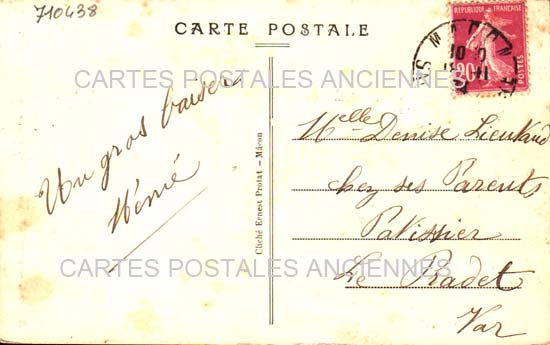 710438
CARTE POSTALE
REPUBLIQUE FRANÇAISE
POSTES
MACON
CARTES POSTALES ANCIENNES
Un gros baiser
Cliché Ernest Protat - Mâcon
Mlle Denise Lieutaud
chez ses Parents
Patissier
CARTES POSTALES ANCIENNES
Le Pradet
Var